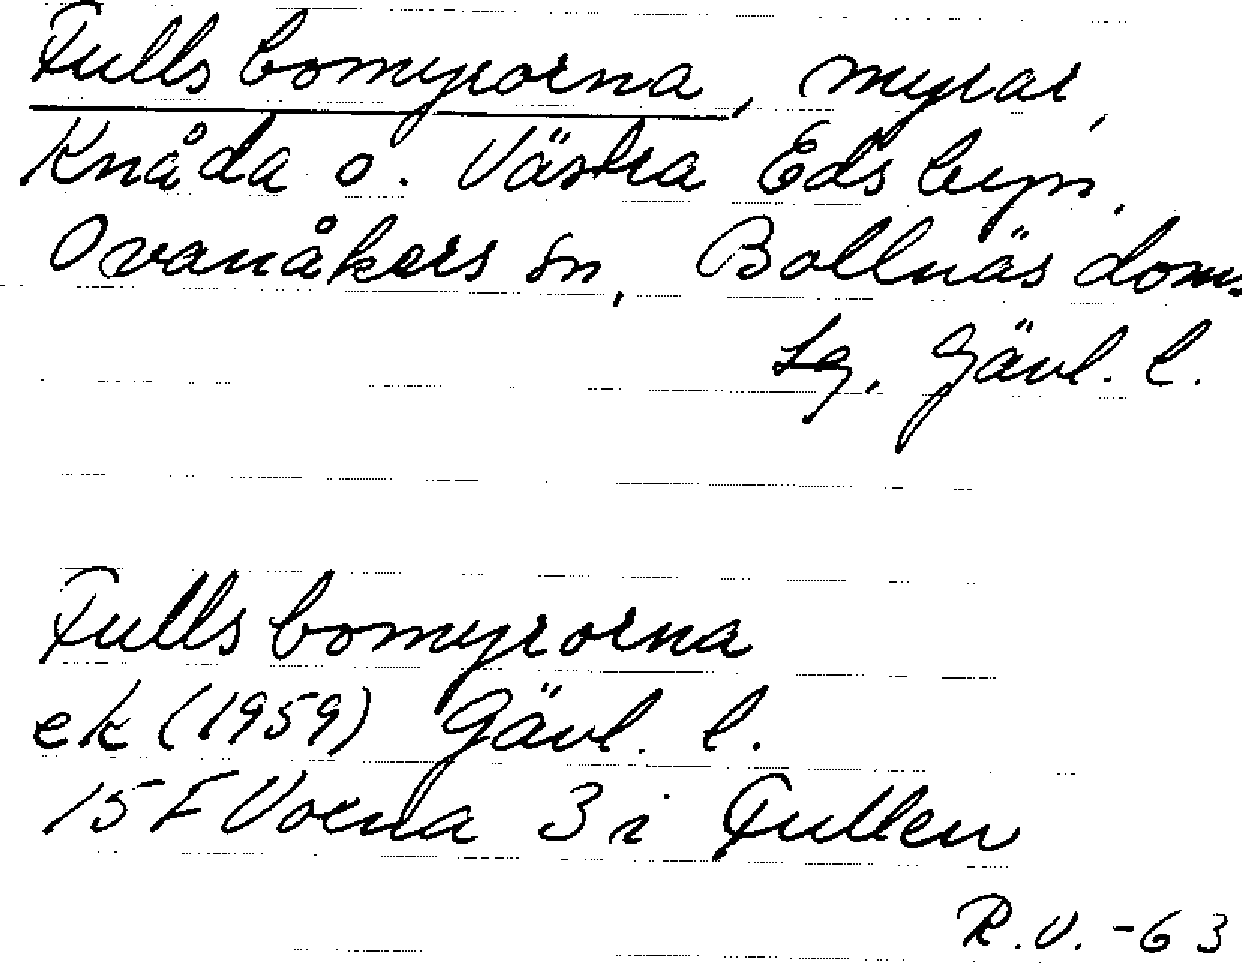 Fullsbomyrorna, myrar,
Knåda o. Västra Edsbyn.
Ovanåkers sn, Bollnäs doms.
Lg. Gävl. l.
Fullsbomyrorna
ek (1959) Gävl. l.
15 F Voxna 3 i Fullen
R.V. -63